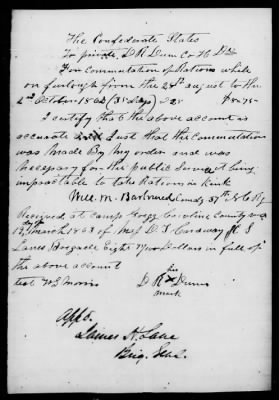 The Confederate States
To private D R Dum Co H
For commutation of Rations while
on furlough from the 29th august to the
2nd October 1862 (35 days) 25c $8.75
I certify that the above account is
accurate and Just that the commutation
was made By my order and was
necessary for the public Service it being
impracticable to take Rations in kind
Will. M. Barbour Comdg 37th N C Reg
Received at camp Gregg Caroline County va
13th March 1863 of Maj D. T. Carraway
Lanes Brigade Eight 75/100 Dollars in full of
the above account
his
test W G Morris D R X Dum
mark
App'd.
James H. Lane
Brig. Genl.